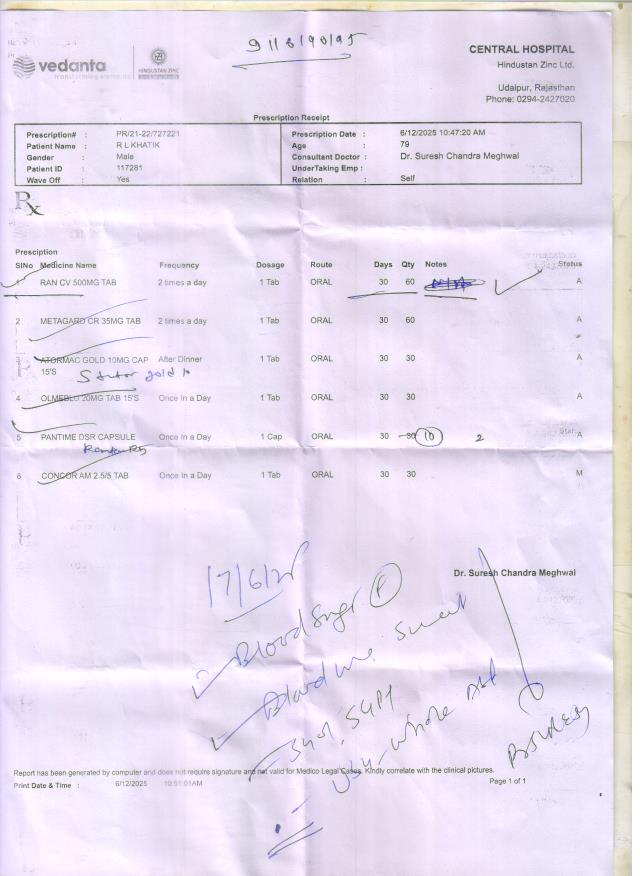 9116190195
vedanta
transforming elements
HINDUSTAN ZINC
CENTRAL HOSPITAL
Hindustan Zinc Ltd.
Udaipur, Rajasthan
Phone: 0294-2427020
Prescription Receipt
Prescription# : PR/21-22/727221 Prescription Date : 6/12/2025 10:47:20 AM
Patient Name : R L KHATIK Age : 79
Gender : Male Consultant Doctor : Dr. Suresh Chandra Meghwal
Patient ID : 117281 UnderTaking Emp :
Wave Off : Yes Relation : Self
Rx
Presciption
SlNo Medicine Name Frequency Dosage Route Days Qty Notes Status
RAN CV 500MG TAB 2 times a day 1 Tab ORAL 30 60 A
2 METAGARD CR 35MG TAB 2 times a day 1 Tab ORAL 30 60 A
3 ATORMAC GOLD 10MG CAP After Dinner 1 Tab ORAL 30 30 A
15'S
gold 10
4 OLMEBLO 20MG TAB 15'S Once In a Day 1 Tab ORAL 30 30 A
5 PANTIME DSR CAPSULE Once In a Day 1 Cap ORAL 30 30 10 2 A
6 CONCOR AM 2.5/5 TAB Once In a Day 1 Tab ORAL 30 30 M
Dr. Suresh Chandra Meghwal
17/6/25
Blood Sugar F
Blood
SGOT, SGPT
USG whole Abd
Report has been generated by computer and does not require signature and not valid for Medico Legal Cases. Kindly correlate with the clinical pictures.
Print Date & Time : 6/12/2025 10:51:01AM Page 1 of 1